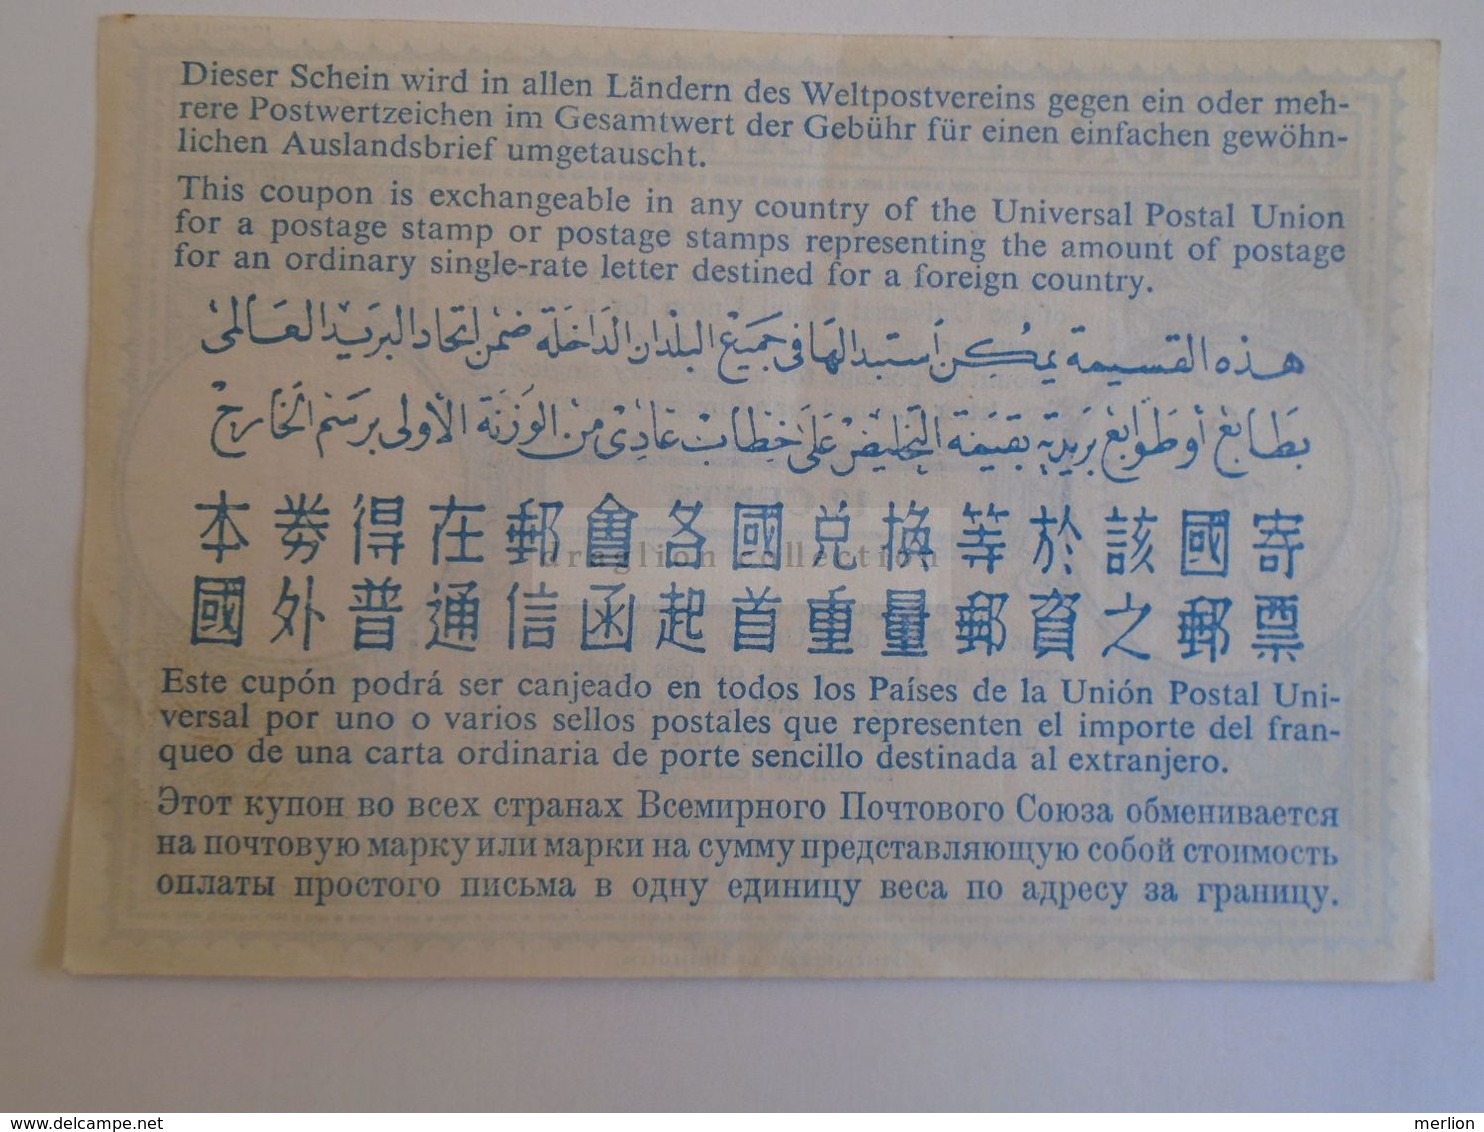 Dieser Schein wird in allen Ländern des Weltpostvereins gegen ein oder meh-
rere Postwertzeichen im Gesamtwert der Gebühr für einen einfachen gewöhn-
lichen Auslandsbrief umgetauscht.
This coupon is exchangeable in any country of the Universal Postal Union
for a postage stamp or postage stamps representing the amount of postage
for an ordinary single-rate letter destined for a foreign country.
هذه القسيمة يمكن استبدالها في جميع البلدان الداخلة ضمن اتحاد البريد العالمى
بطابع أو طوابع بريدية بقيمة التخليص على خطاب عادى من الوزنة الأولى برسم الخارج
本券得在郵會各國兌換等於該國寄
國外普通信函起首重量郵資之郵票
draglion collection
Este cupón podrá ser canjeado en todos los Países de la Unión Postal Uni-
versal por uno o varios sellos postales que representen el importe del fran-
queo de una carta ordinaria de porte sencillo destinada al extranjero.
Этот купон во всех странах Всемирного Почтового Союза обменивается
на почтовую марку или марки на сумму представляющую собой стоимость
оплаты простого письма в одну единицу веса по адресу за границу.
delcampe.net
merlion